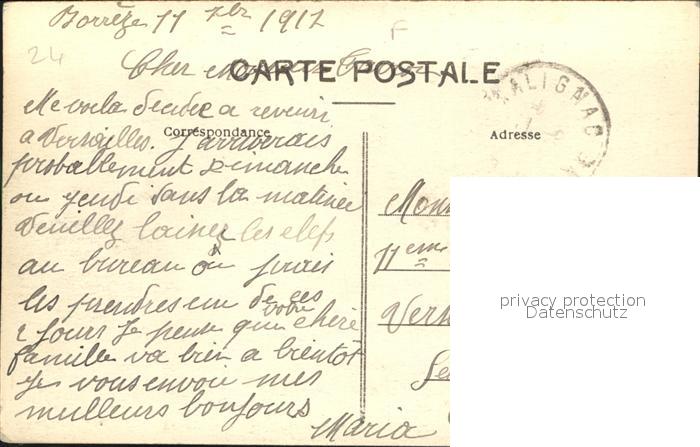 Borrèze 11 7bre 1912
24
F
Cher
CARTE POSTALE
SALIGNAC
Correspondance
Adresse
Me voila decidee a revenir
a Versailles. J'arriverais
probablement dimanche
ou jeudi dans la matinee
Veuillez laisser les clefs
au bureau ou jirais
les prendres un de ces
2 jours Je pense que votre chère
famille va bien a bientot
Je vous envoie mes
meilleurs bonjours
Maria
11eme
privacy protection
Datenschutz